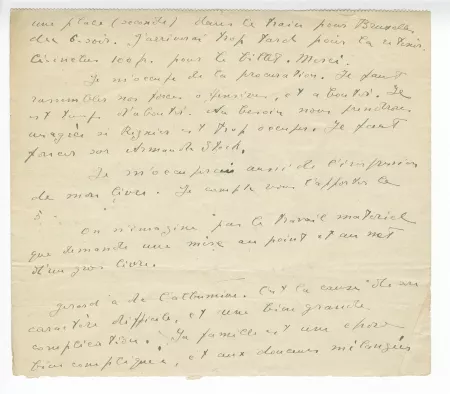 une place (seconde) dans le train pour Bruxelles
du 6 soir. J'arriverai trop tard pour la retenir.
Ci inclus 100 f. pour le billet. Merci.
Je m'occupe de la procuration. Il faut
rassembler nos forces offensives, et aboutir. Il
est temps d'aboutir. Au besoin nous prendrons
un agréé si Régnier est trop occupé. Il faut
foncer sur Armande Stock.
Je m'occuperai aussi de l'impression
de mon livre. Je compte vous l'apporter le
5.
On n'imagine pas le travail matériel
que demande une mise au point et au net
d'un gros livre.
Gérard a de l'albumine. C'est la cause de son
caractère difficile, et une bien grande
complication. La famille est une chose
bien compliquée, et aux douceurs mélangées